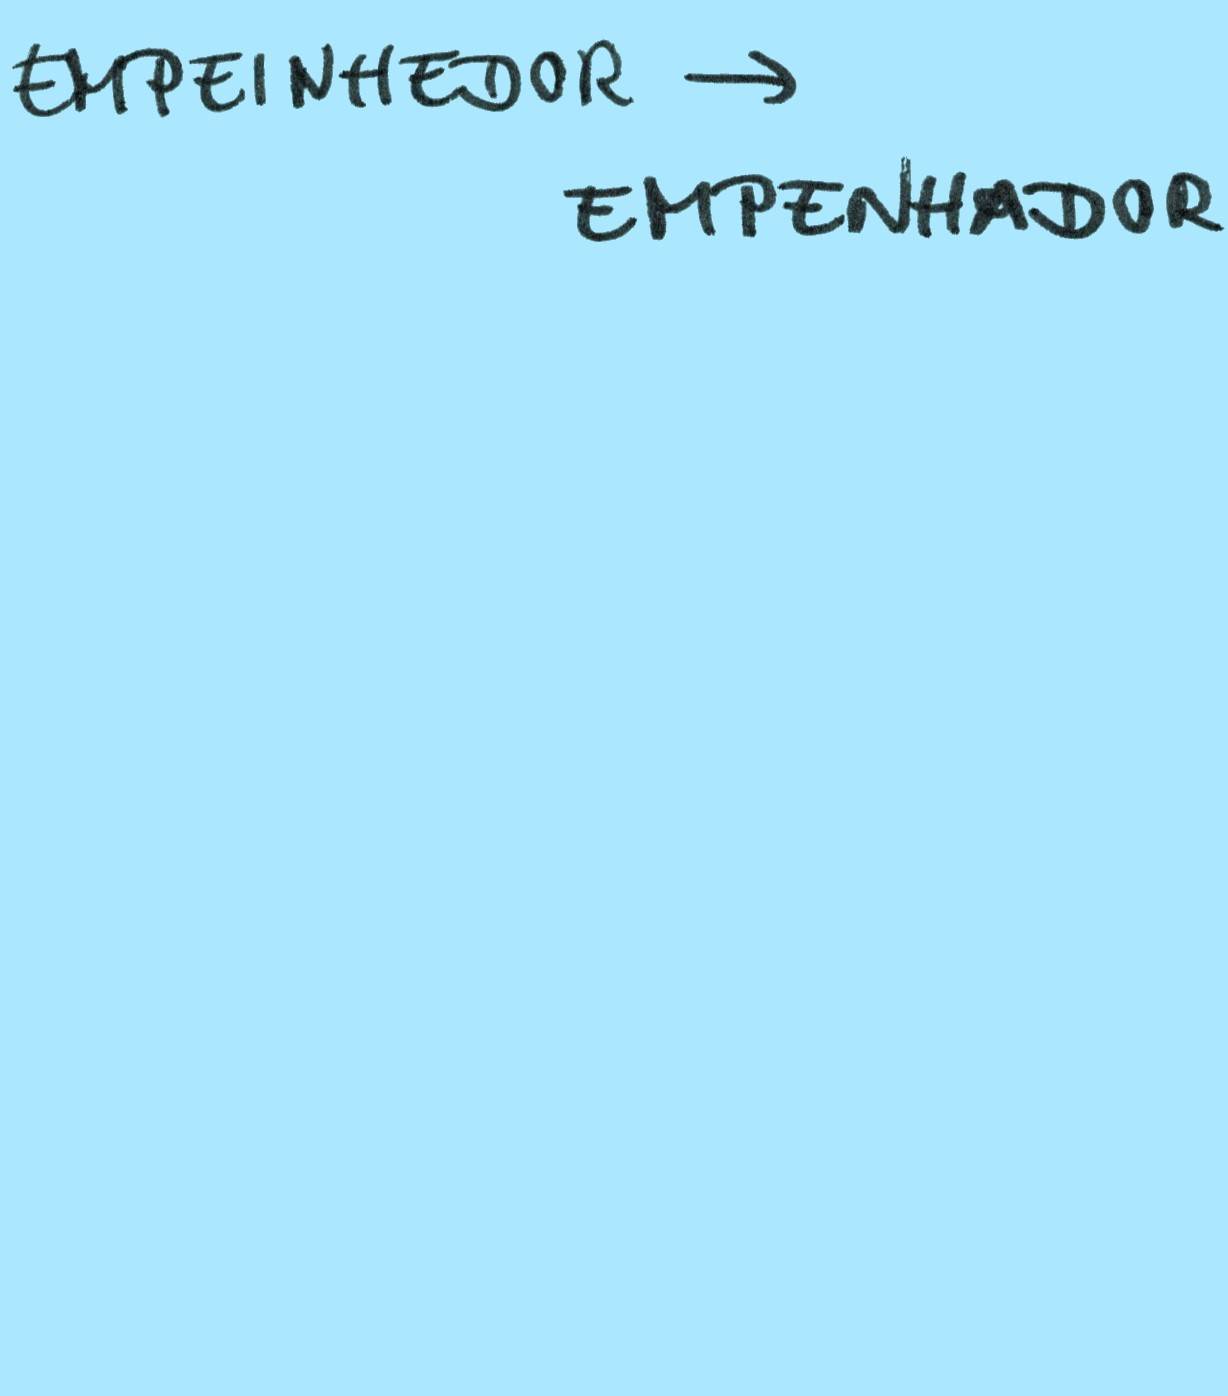 EMPEINHEDOR →
EMPENHADOR